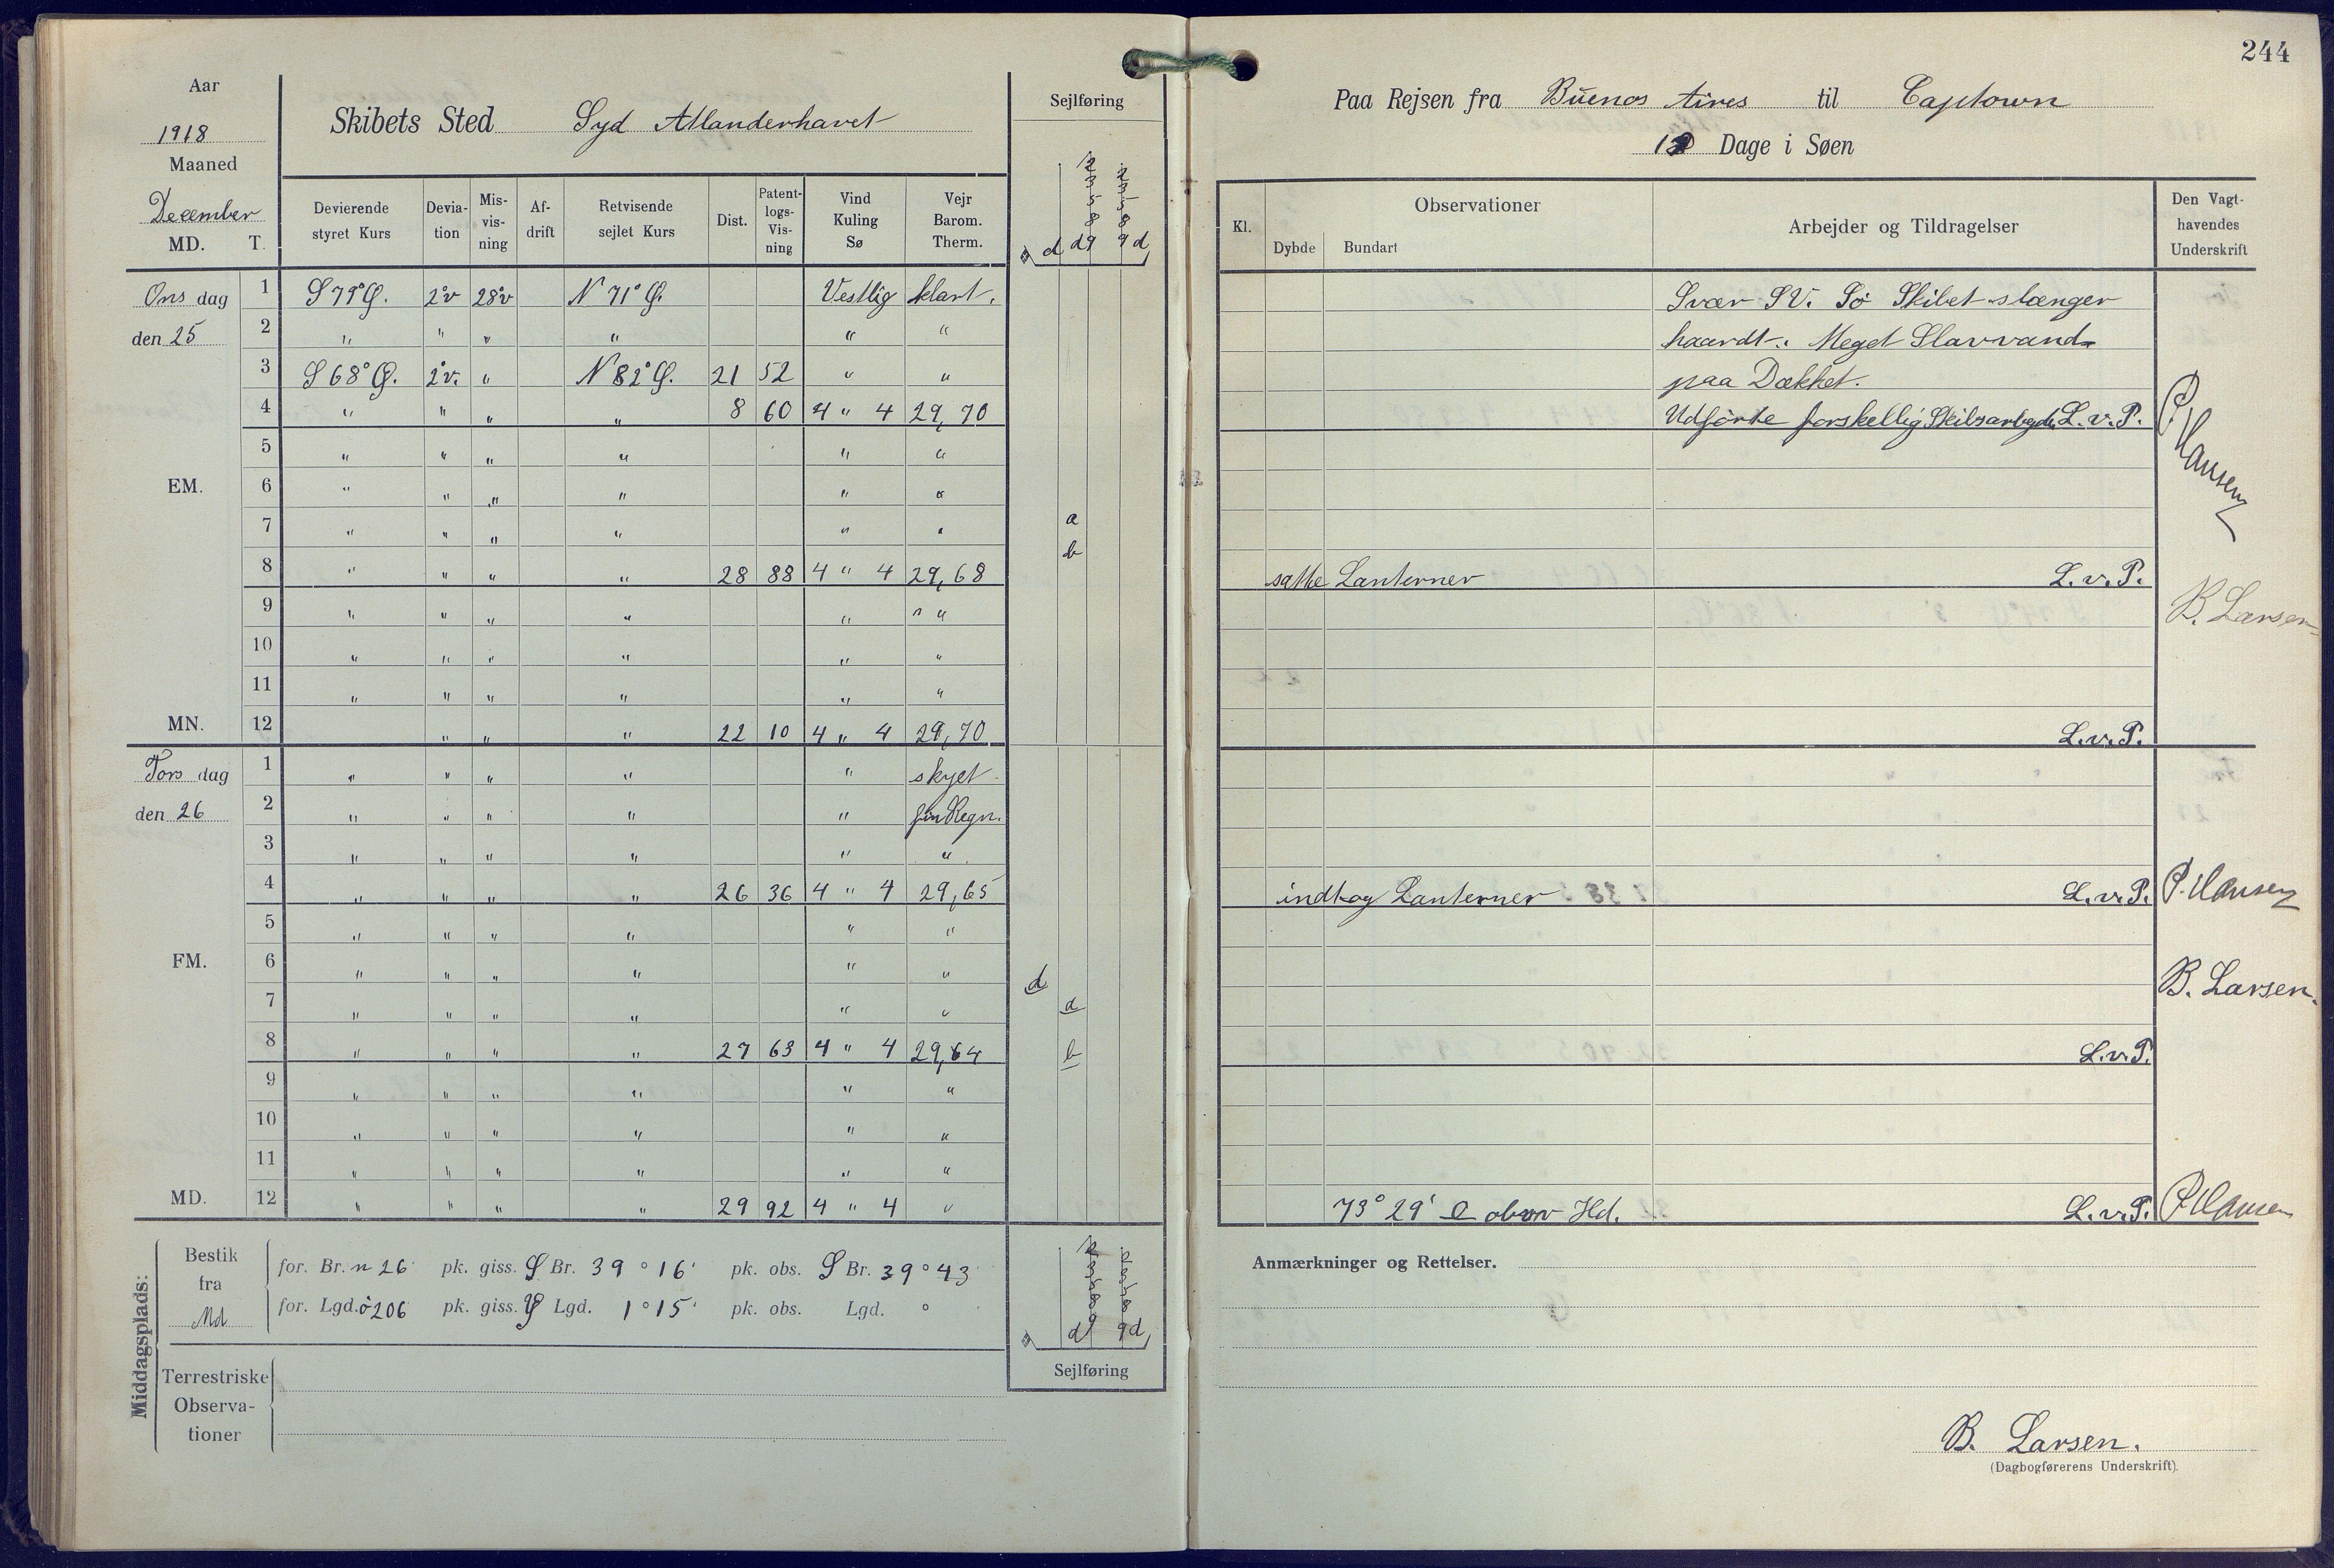 244
Aar
1918
Maaned
December
MD. T.
Skibets Sted Syd Atlanderhavet
Sejlføring
Devierende styret Kurs
Deviation
Misvisning
Afdrift
Retvisende sejlet Kurs
Dist.
Patentlogs-Visning
Vind Kuling Sø
Vejr Barom. Therm.
Ons dag 1 S 79° Ø. 2°v 28°v N 71° Ø. Vestlig klart.
den 25 2 " " " " " "
3 S 68° Ø. 2°v. " N 82° Ø. 21 52 " "
4 " " " " 8 60 4 " 4 29,70
5 " " " " " "
EM. 6 " " " " " "
7 " " " " " " a
8 " " " " 28 88 4 " 4 29,68 b
9 " " " " " " "
10 " " " " " "
11 " " " " " "
MN. 12 " " " 22 10 4 " 4 29,70
Tors dag 1 " " " " " skyet
den 26 2 " " " " " fin Regn.
3 " " " " " "
4 " " " " 26 36 4 " 4 29,65
5 " " " " " "
FM. 6 " " " " " " d
7 " " " " " " a
8 " " " " 27 63 4 " 4 29,64 b
9 " " " " " "
10 " " " " " "
11 " " " " " "
MD. 12 " " " " 29 92 4 " 4 "
Middagsplads:
Bestik fra Md
for. Br. n 26' pk. giss. S Br. 39° 16' pk. obs. S Br. 39° 43
for. Lgd. ö 206 pk. giss. Lgd. 1° 15' pk. obs. Lgd. °
Terrestriske Observationer
Sejlføring
Paa Rejsen fra Buenos Aires til Captown
Dage i Søen
Kl.
Observationer
Dybde Bundart
Arbejder og Tildragelser
Den Vagthavendes Underskrift
Svær SV. Sö Skibet slænger
haardt. Meget Slavvand
paa Dækket.
Udförte forskellig Skibsarbejde L. v. P. P. Hansen
satte Lanterner L. v. P.
B. Larsen
L. v. P.
indtog Lanterner L. v. P. P. Hansen
B. Larsen.
L. v. P.
73° 29' obsv Hd. L. v. P. P Hansen
Anmærkninger og Rettelser.
B. Larsen.
(Dagbogførerens Underskrift).